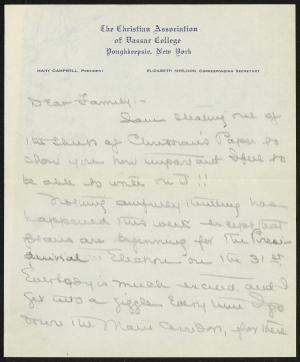 The Christian Association
of Vassar College
Poughkeepsie, New York
MARY CAMPBELL, PRESIDENT
ELIZABETH SHELDON, CORRESPONDING SECRETARY
Dear Family:-
I am stealing one of
the sheets of Christian's Paper to
show you how important I feel to
be able to write on it!!
Nothing awfully thrilling has
happened this week except that
are beginning for the Presi-
dential Election on the 31st.
Everybody is much excited and I
get into a giggle every time I go
down the Main Corridor, for there